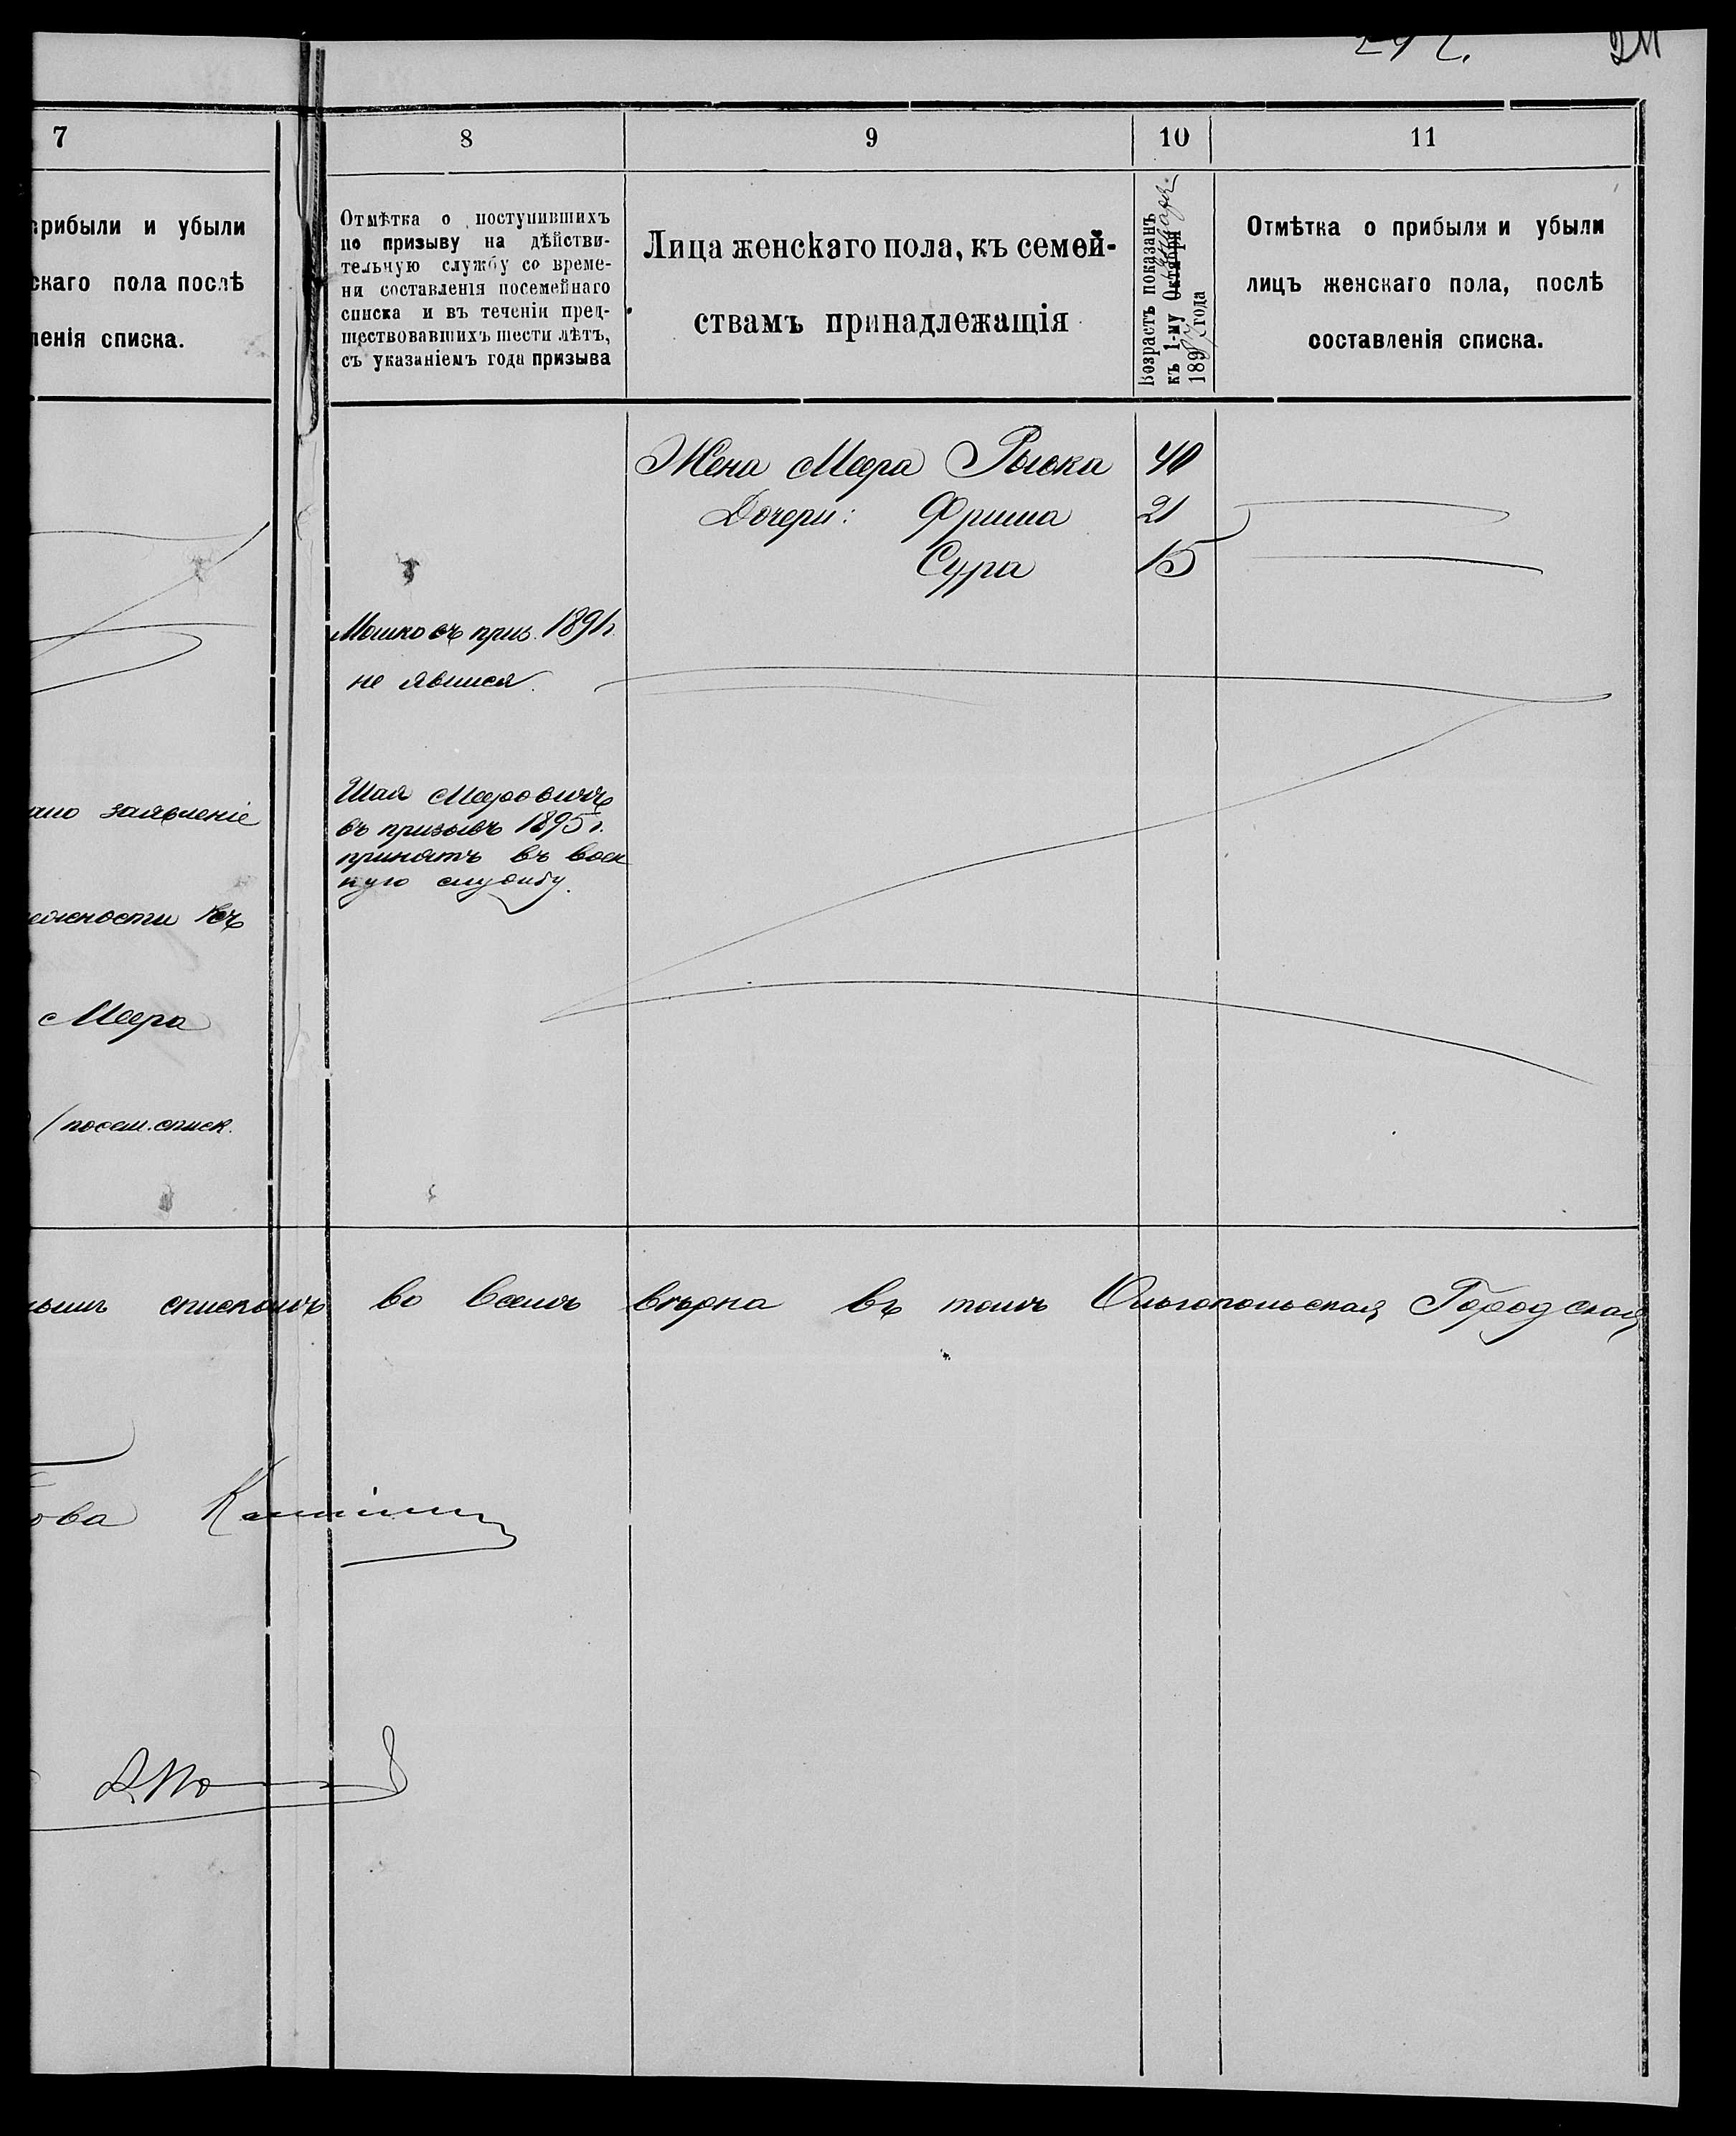 7
8
9
10
11
прибыли и убыли
скаго пола послѣ
ленія списка.
Отмѣтка о поступившихъ
по призыву на дѣйстви-
тельную службу со време-
ни составленія посемейнаго
списка и въ теченіи пред-
шествовавшихъ шести лѣтъ,
съ указаніемъ года призыва
Лица женскаго пола, къ семей-
ствамъ принадлежащія
Возрастъ показанъ
къ 1-му Октября Января
189 года
Отмѣтка о прибыли и убыли
лицъ женскаго пола, послѣ
составленія списка.
Жена Меера Рыска 40
Дочери: Фрима 21
Сура 15
Мошко въ приз. 1891 г.
не явился.
Шая Мееровичъ
въ призывъ 1895 г.
принятъ въ воен
ную службу.
ано заявленіе
лежности къ
Меера
/ посем. списк.
нымъ спискомъ во всемъ вѣрна въ томъ Ольгопольская Городская
ова